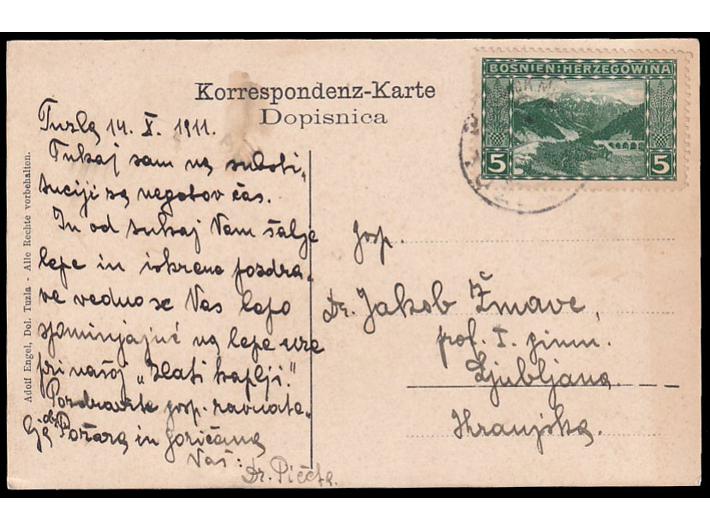 Korrespondenz-Karte
Dopisnica
BOSNIEN-HERZEGOWINA
5 5
Adolf Engel, Dol. Tuzla - Alle Rechte vorbehalten.
Tuzla 14. X. 1911.
Tukaj sem na substi-
tuciji za negotov čas.
In od tukaj Vam šalje
lepe in iskrene pozdra-
ve vedno se Vas lepo
spominjajuć na lepe ure
pri našoj „Zlati kaplji."
Pozdravite gosp. ravnate-
lja Požara in goričana
Vaš:
Dr. Piećta.
Gosp.
Dr. Jakob Žmavc,
prof. I. gimn.
Ljubljana
Kranjska.